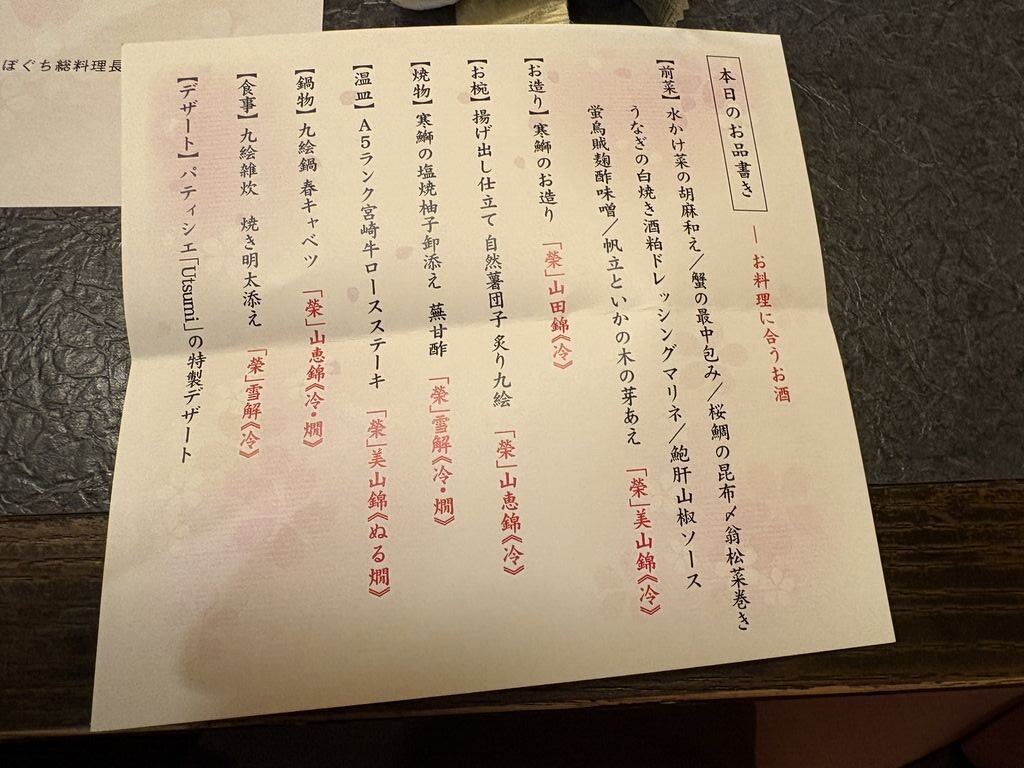 本日のお品書き
―お料理に合うお酒
【前菜】水かけ菜の胡麻和え/蟹の最中包み/桜鯛の昆布〆翁松菜巻き
うなぎの白焼き酒粕ドレッシングマリネ/鮑肝山椒ソース
蛍烏賊麹酢味噌/帆立といかの木の芽あえ 「榮」美山錦《冷》
【お造り】寒鰤のお造り 「榮」山田錦《冷》
【お椀】揚げ出し仕立て 自然薯団子 炙り九絵 「榮」山恵錦《冷》
【焼物】寒鰤の塩焼柚子卸添え 蕪甘酢 「榮」雪解《冷・燗》
【温皿】A5ランク宮崎牛ロースステーキ 「榮」美山錦《ぬる燗》
【鍋物】九絵鍋 春キャベツ 「榮」山恵錦《冷・燗》
【食事】九絵雑炊 焼き明太添え 「榮」雪解《冷》
【デザート】パティシエ「Utsumi」の特製デザート
ぼぐち総料理長